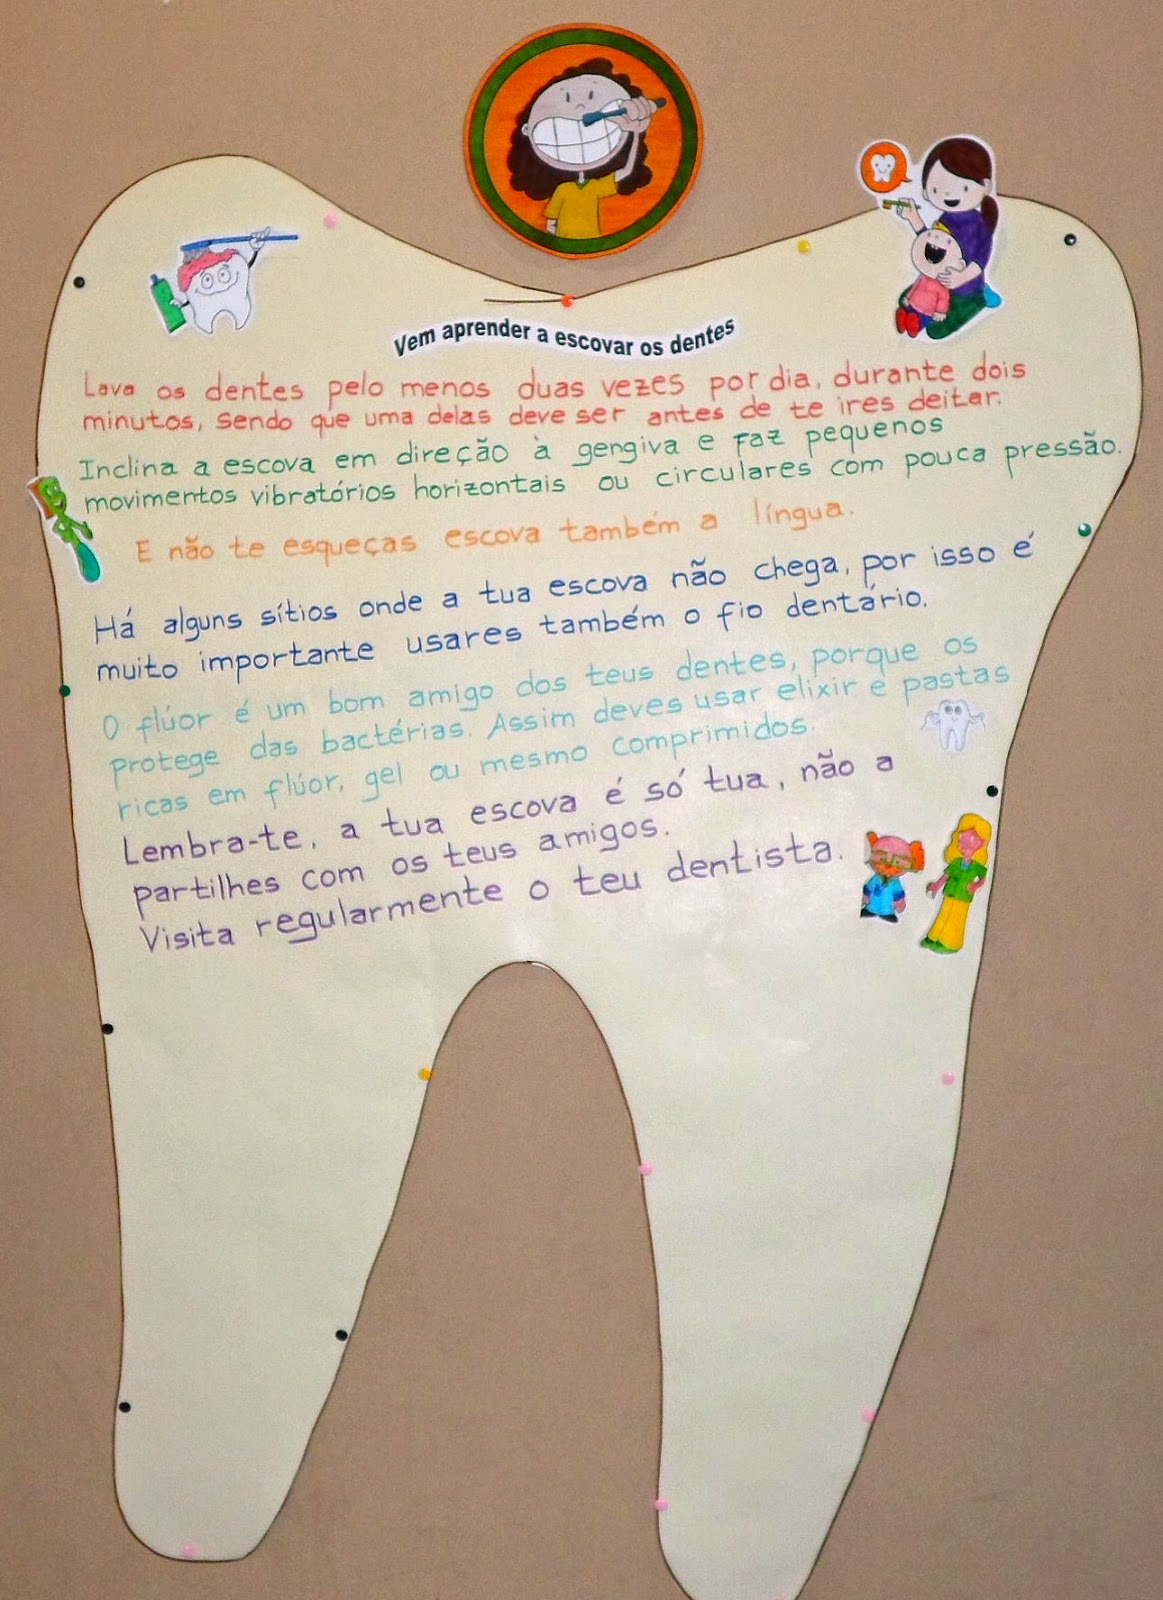 Vem aprender a escovar os dentes
Lava os dentes pelo menos duas vezes por dia, durante dois
minutos, sendo que uma delas deve ser antes de te ires deitar.
Inclina a escova em direção à gengiva e faz pequenos
movimentos vibratórios horizontais ou circulares com pouca pressão.
E não te esqueças escova também a língua.
Há alguns sítios onde a tua escova não chega, por isso é
muito importante usares também o fio dentário.
O flúor é um bom amigo dos teus dentes, porque os
protege das bactérias. Assim deves usar elixir e pastas
ricas em flúor, gel ou mesmo comprimidos.
Lembra-te, a tua escova é só tua, não a
partilhes com os teus amigos.
Visita regularmente o teu dentista.